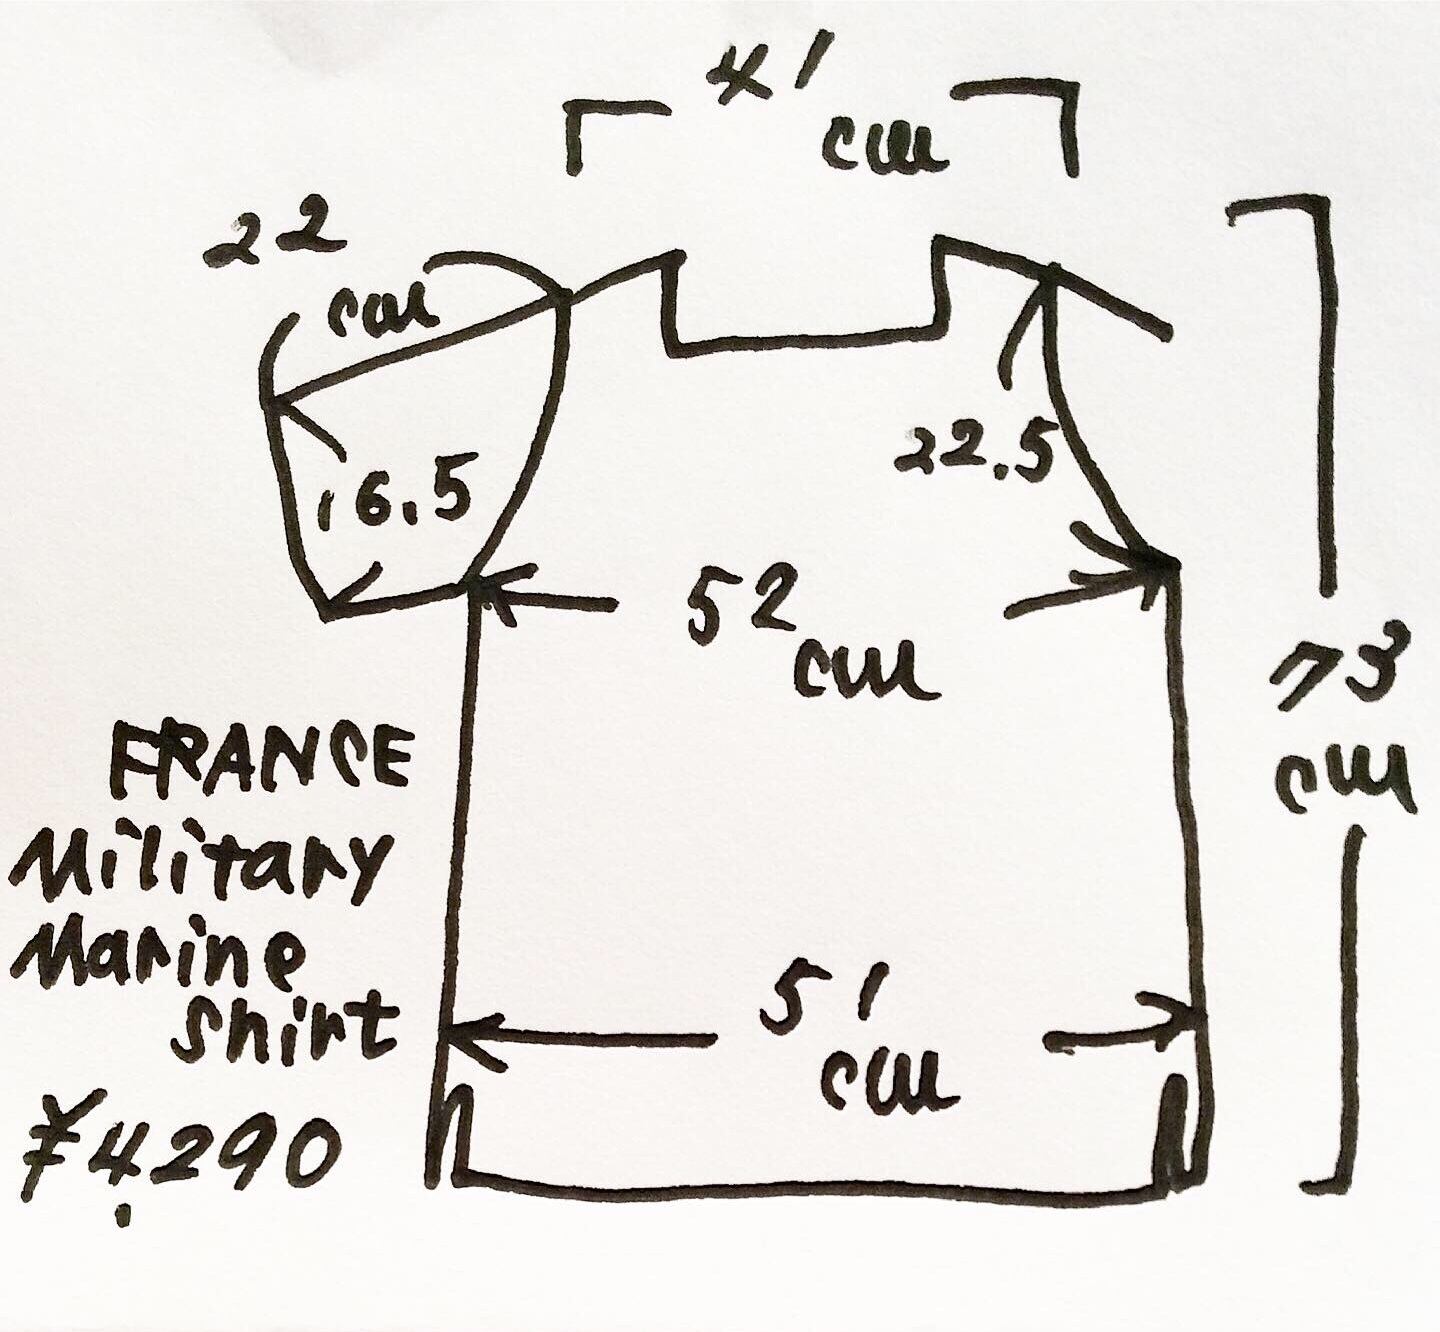 41
cm
22
cm
16.5
22.5
52
cm
73
cm
FRANCE
Military
Marine
Shirt
51
cm
¥4,290